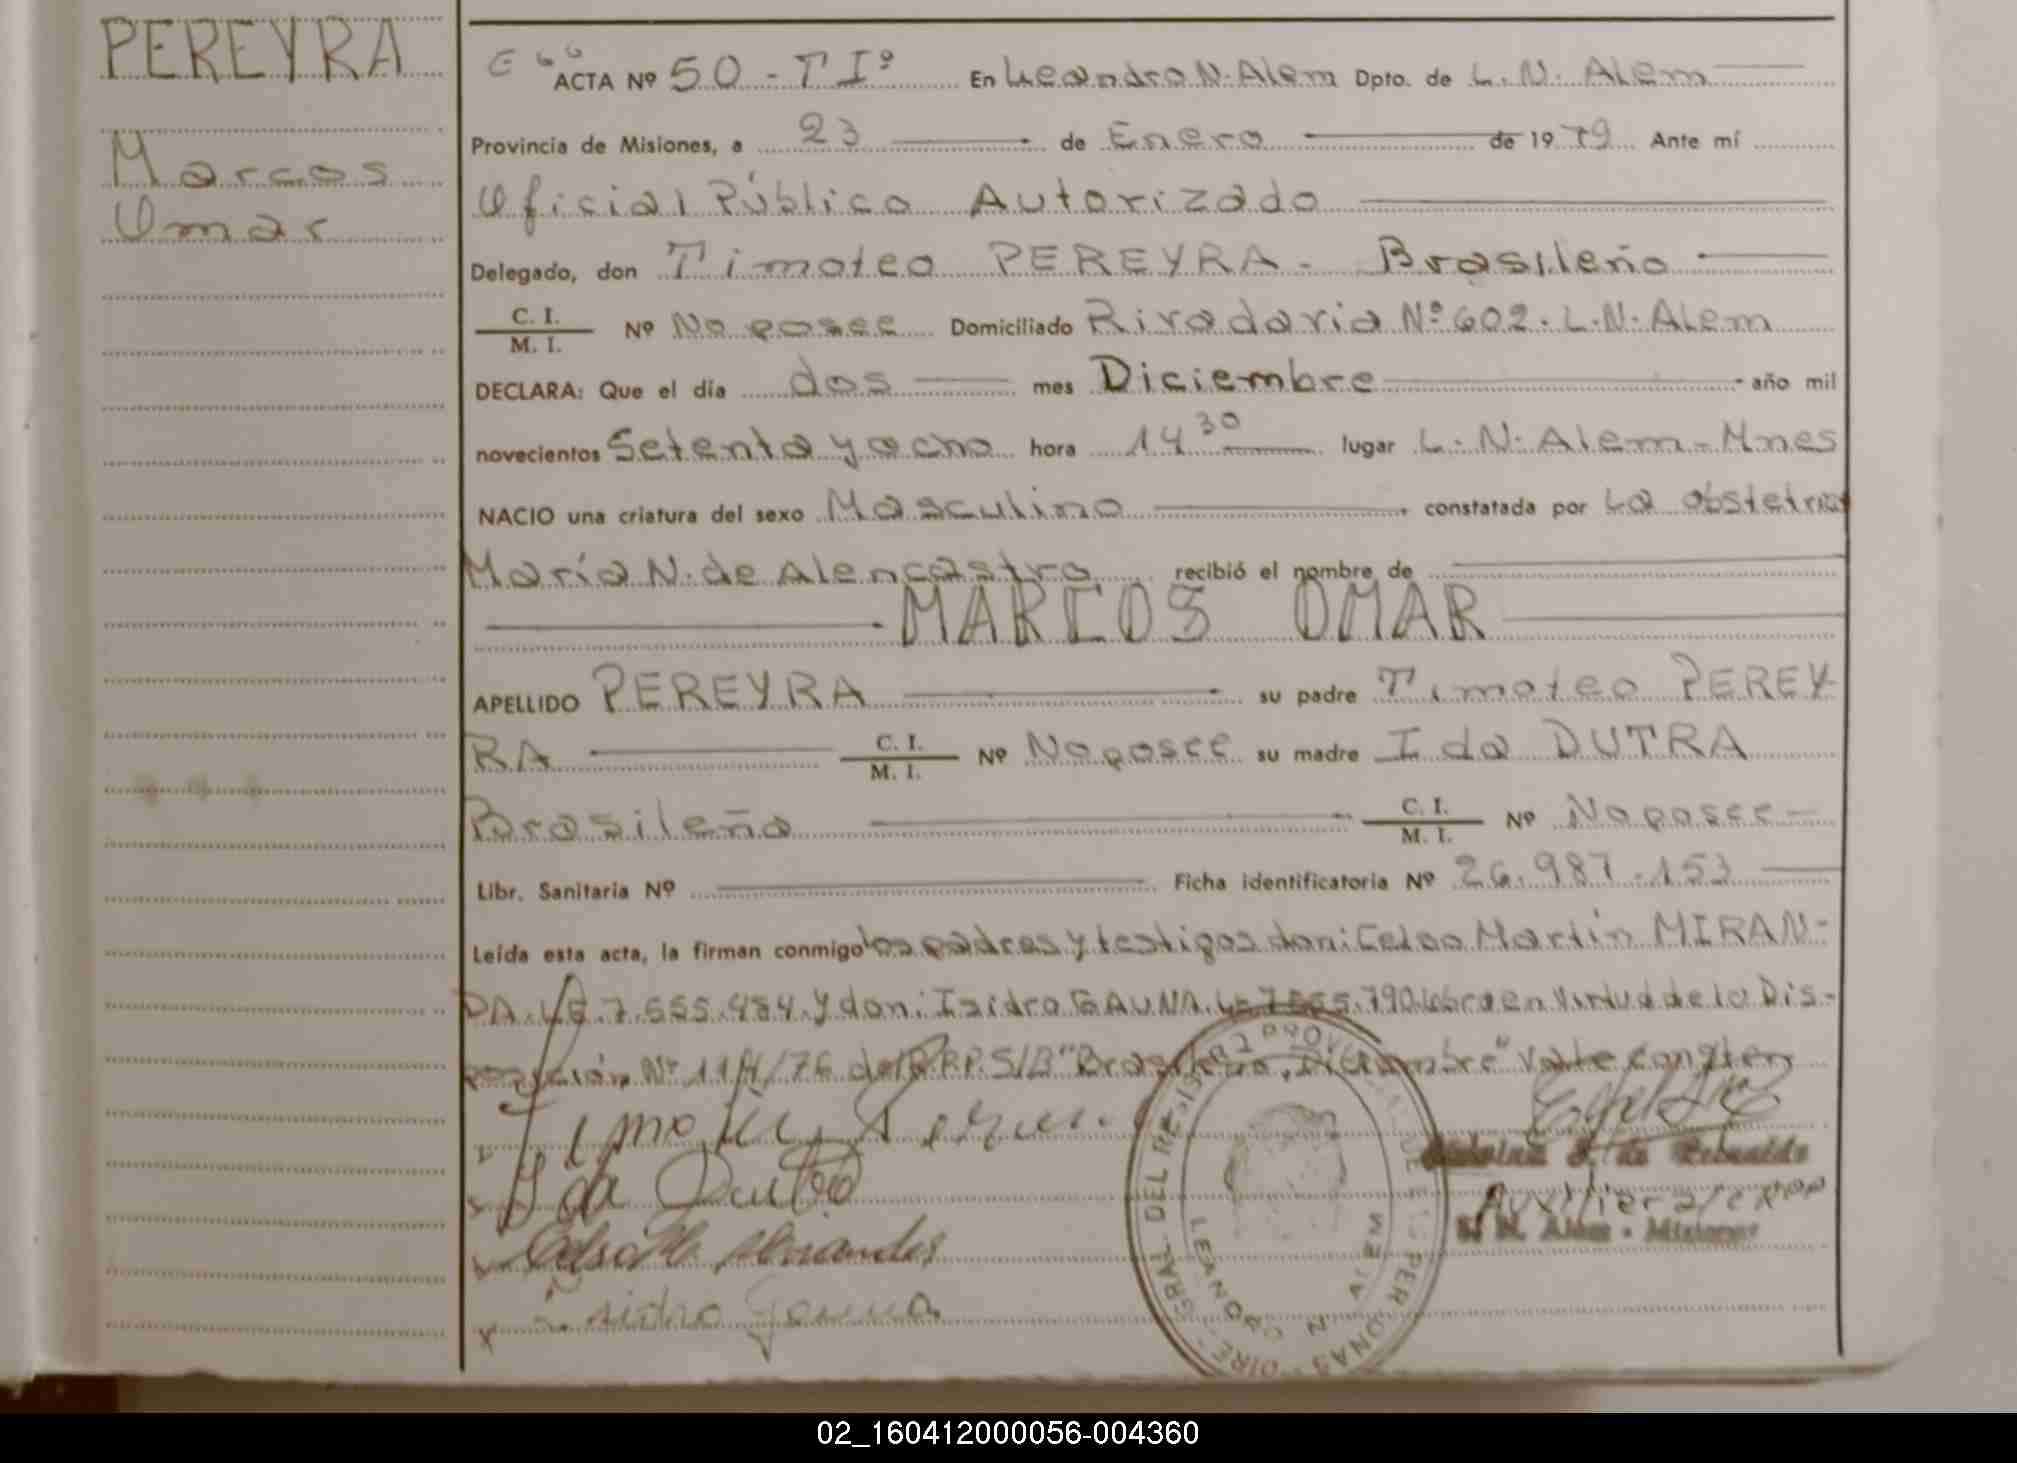 PEREYRA
Marcos
Omar
ACTA Nº 50 - T Iº En Leandro N. Alem Dpto. de L. N. Alem
Provincia de Misiones, a 23 de Enero de 1979 Ante mí
Oficial Público Autorizado
Delegado, don Timoteo PEREYRA - Brasileño
C. I.
M. I. Nº No posee Domiciliado Rivadavia Nº 602. L.N. Alem
DECLARA: Que el día dos mes Diciembre año mil
novecientos Setenta y ocho hora 14 30 lugar L. N. Alem - Mnes
NACIO una criatura del sexo Masculino constatada por La obstetrica
María N. de Alencastro recibió el nombre de
MARCOS OMAR
APELLIDO PEREYRA su padre Timoteo PEREY-
RA C. I.
M. I. Nº No posee su madre Ida DUTRA
Brasileña C. I.
M. I. Nº No posee -
Libr. Sanitaria Nº Ficha identificatoria Nº 26.987.153
Leída esta acta, la firman conmigo los padres y testigos don: Celso Martín MIRAN-
DA. LE. 7.555.484. y don: Isidro GAUNA. LE. labra en Virtud de la Dis-
posición Nº /76 del R.P.P. S/B "Brasileño, Diciembre" Vale
Ida Dutra
Isidro Gauna
DIRE. GRAL. DEL REGISTRO PROV. DE L PERSONAS
L. N. Alem - Misiones
02_160412000056-004360